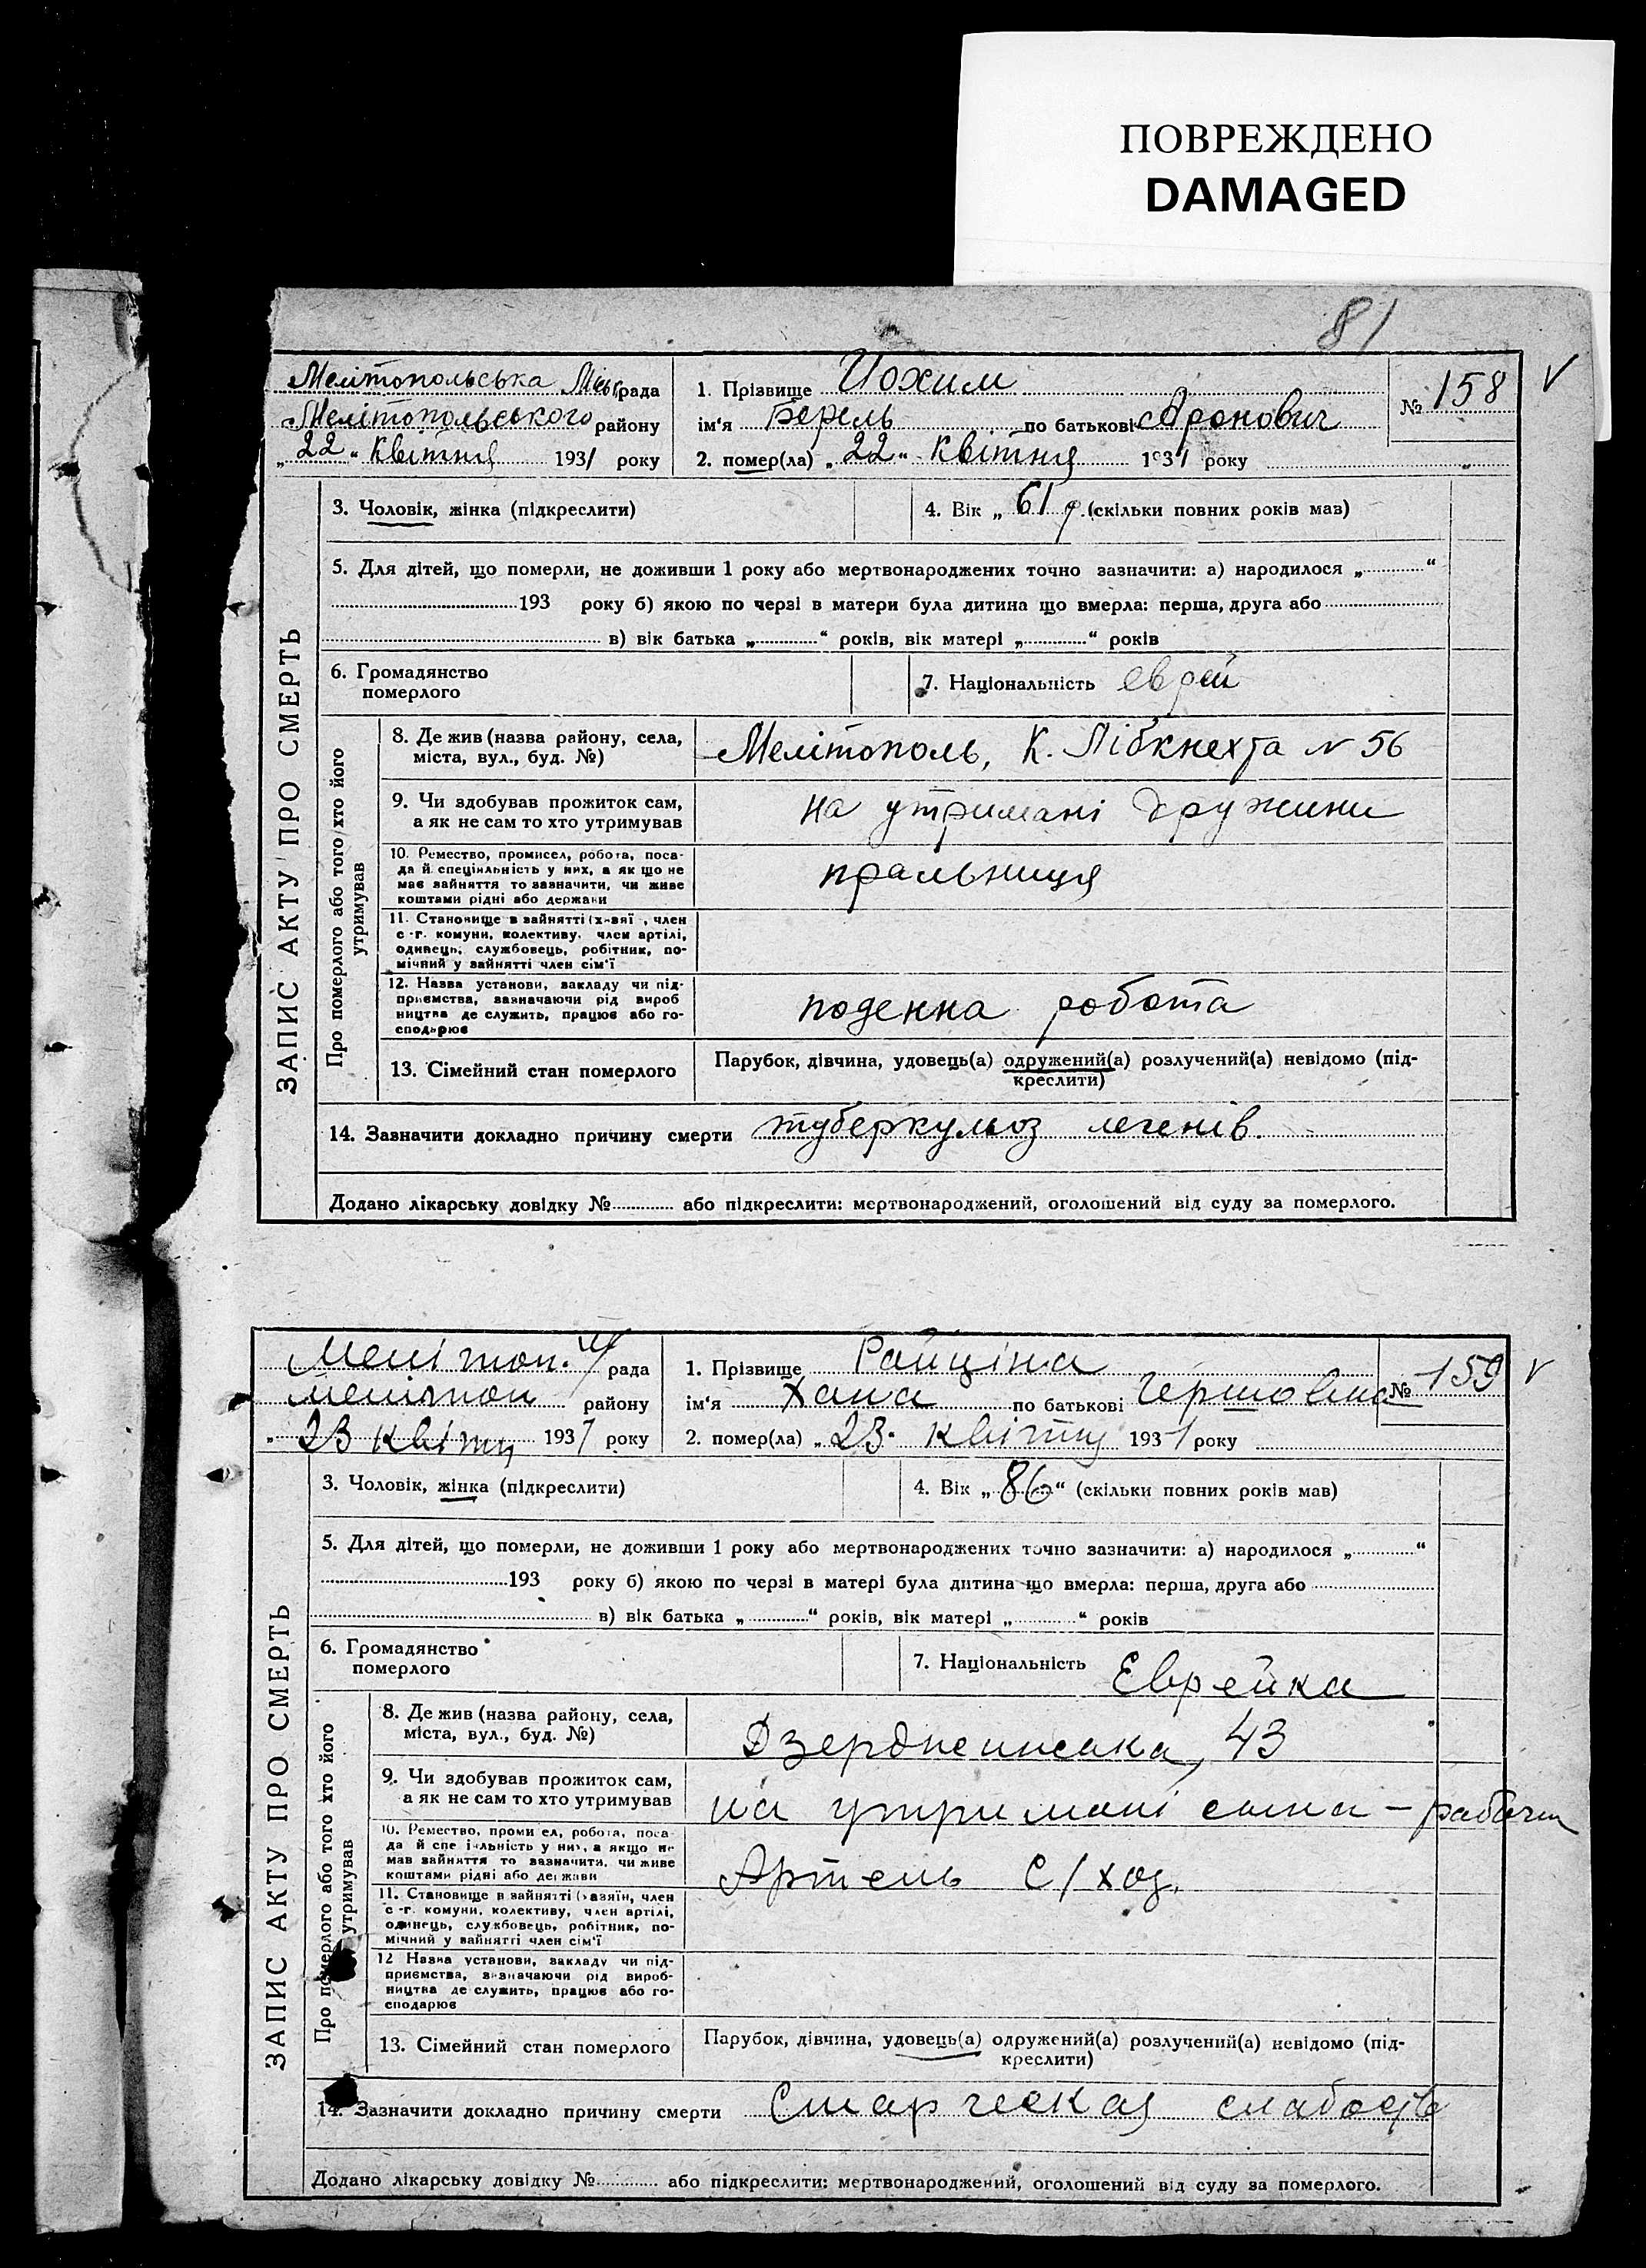 ПОВРЕЖДЕНО
DAMAGED
81
Мелітопольська Міськ рада
Мелітопольського району
„ 22 “ квітня 1931 року
1. Прізвище Йохим
ім'я Берель по батькові Аронович
2. помер(ла) „ 22 “ квітня 1931 року
№ 158
V
ЗАПИС АКТУ ПРО СМЕРТЬ
3. Чоловік, жінка (підкреслити)
4. Вік „ 61 р. (скільки повних років мав)
5. Для дітей, що померли, не доживши 1 року або мертвонароджених точно зазначити: а) народилося „ “
193 року б) якою по черзі в матери була дитина що вмерла: перша, друга або
в) вік батька „ “ років, вік матері „ “ років
6. Громадянство
померлого
7. Національність еврей
Про померлого або того хто його
утримував
8. Де жив (назва району, села,
міста, вул., буд. №)
Мелітополь, К. Лібкнехта N 56
9. Чи здобував прожиток сам,
а як не сам то хто утримував
на утримані дружини
10. Ремество, промисел, робота, поса-
да й спеціяльність у них, а як що не
має зайняття то зазначити, чи живе
коштами рідні або держави
пральниця
11. Становище в зайнятті (х-зяї , член
с -г. комуни, колективу, член артілі,
одинець, службовець, робітник, по-
мічний у зайнятті член сім'ї
12. Назва установи, закладу чи під-
приємства, зазначаючи рід вироб
ництва де служить, працює або го-
сподарює
поденна робота
13. Сімейний стан померлого
Парубок, дівчина, удовець(а) одружений(а) розлучений(а) невідомо (під-
креслити)
14. Зазначити докладно причину смерти туберкульоз легенів.
Додано лікарську довідку № або підкреслити: мертвонароджений, оголошений від суду за померлого.
Мелітоп. рада
Мелітоп району
„ 23 квітня 1931 року
1. Прізвище Райціна
ім'я Хана по батькові Гершовна
2. помер(ла) „ 23 “ квітня 1931 року
№ 159
V
ЗАПИС АКТУ ПРО СМЕРТЬ
3. Чоловік, жінка (підкреслити)
4. Вік „ 86 “ (скільки повних років мав)
5. Для дітей, що померли, не доживши 1 року або мертвонароджених точно зазначити: а) народилося „ “
193 року б) якою по черзі в матері була дитина що вмерла: перша, друга або
в) вік батька „ “ років, вік матері „ “ років
6. Громадянство
померлого
7. Національність Еврейка
Про померлого або того хто його
утримував
8. Де жив (назва району, села,
міста, вул., буд. №)
Дзержинська, 43
9. Чи здобував прожиток сам,
а як не сам то хто утримував
на утримані сина –
10. Ремество, промисел, робота, поса-
да й спеціяльність у них, а якщо не
мав зайняття то зазначити, чи живе
коштами рідні або держави
Артель С/хоз.
11. Становище в зайнятті (хазяїн, член
с -г. комуни, колективу, член артілі,
одинець, службовець, робітник, по-
мічний у зайнятті член сім'ї
12 Назва установи, закладу чи під-
приємства, зазначаючи рід вироб-
ництва де служить, працює або го-
сподарює
13. Сімейний стан померлого
Парубок, дівчина, удовець(а) одружений(а) розлучений(а) невідомо (під-
креслити)
14. Зазначити докладно причину смерти Старческая слабость
Додано лікарську довідку № або підкреслити: мертвонароджений, оголошений від суду за померлого.